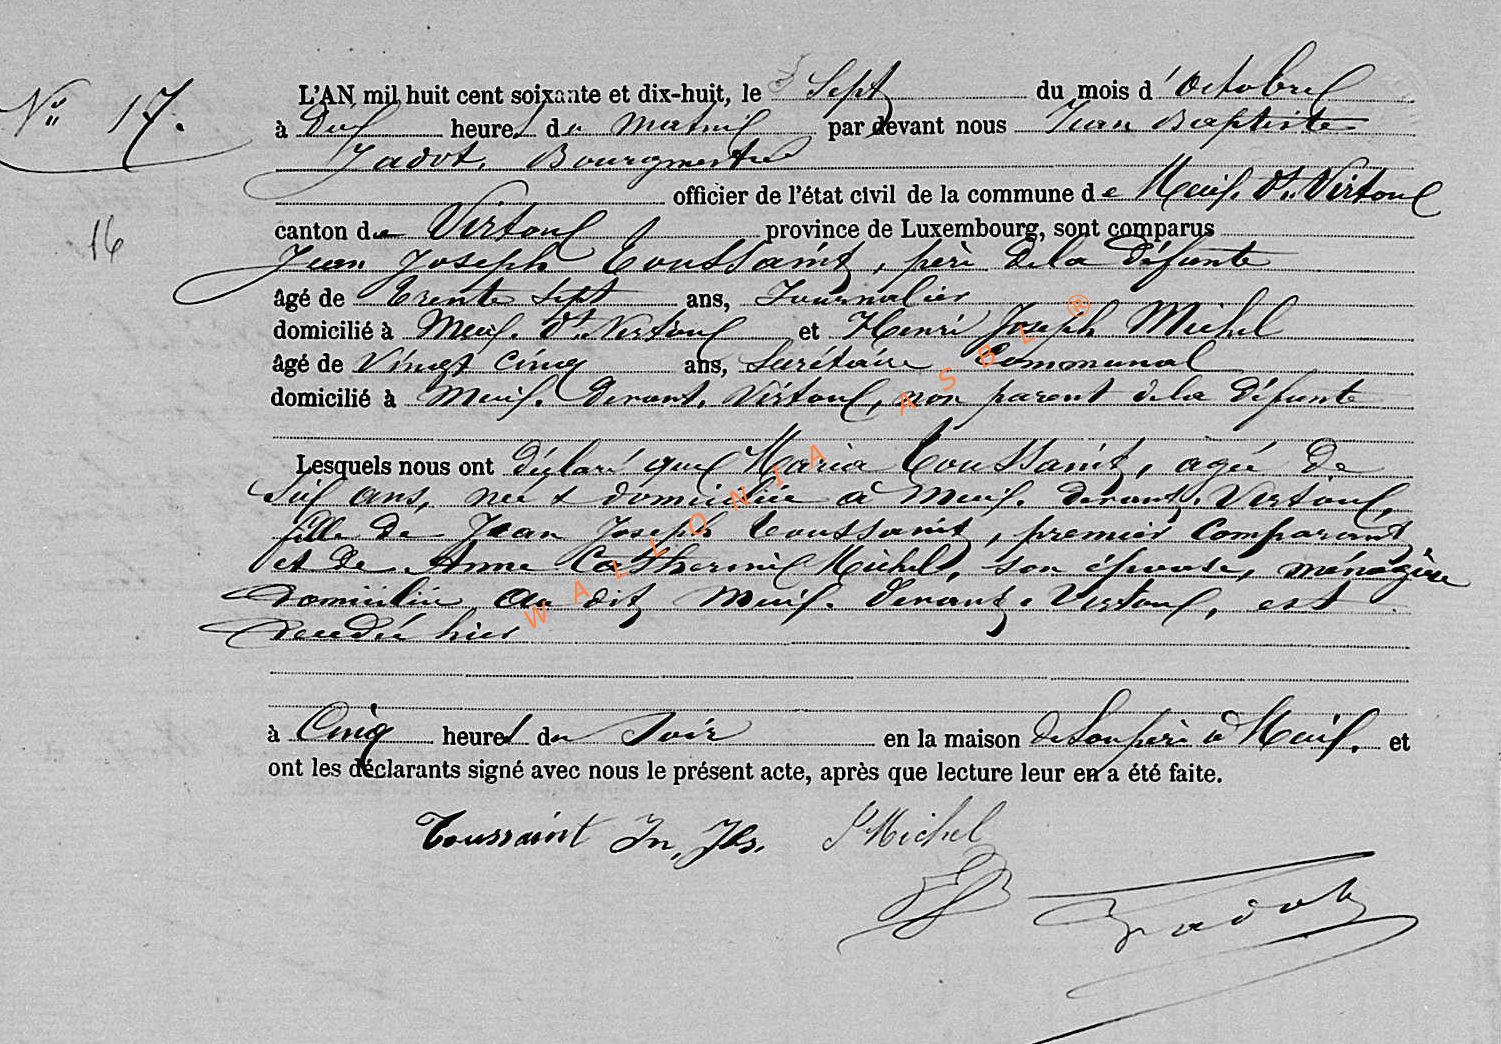 N° 17.
L'AN mil huit cent soixante et dix-huit, le Sept du mois d'Octobre
à Dix heures du matin par devant nous Jean Baptiste
Jadot, Bourgmestre
officier de l'état civil de la commune de Meix dt Virton
16
canton de Virton province de Luxembourg, sont comparus
Jean Joseph Toussaint, père de la défunte
âgé de trente sept ans, Journalier
domicilié à Meix dt Virton et Henri Joseph Michel
âgé de Vingt cinq ans, Secrétaire Communal
domicilié à Meix devant Virton, non parent de la défunte
Lesquels nous ont déclaré que Maria Toussaint, agée de
Six ans, née & domiciliée à Meix devant Virton,
fille de Jean Joseph Toussaint, premier Comparant
et de Anne Catherine Michel, son épouse, ménagère
domiciliée au dit Meix devant Virton, est
décedée hier
à Cinq heures du soir en la maison de son père à Meix. et
ont les déclarants signé avec nous le présent acte, après que lecture leur en a été faite.
Toussaint Jn, Jh. Michel
Jadot
WALLONIA ASBL ®